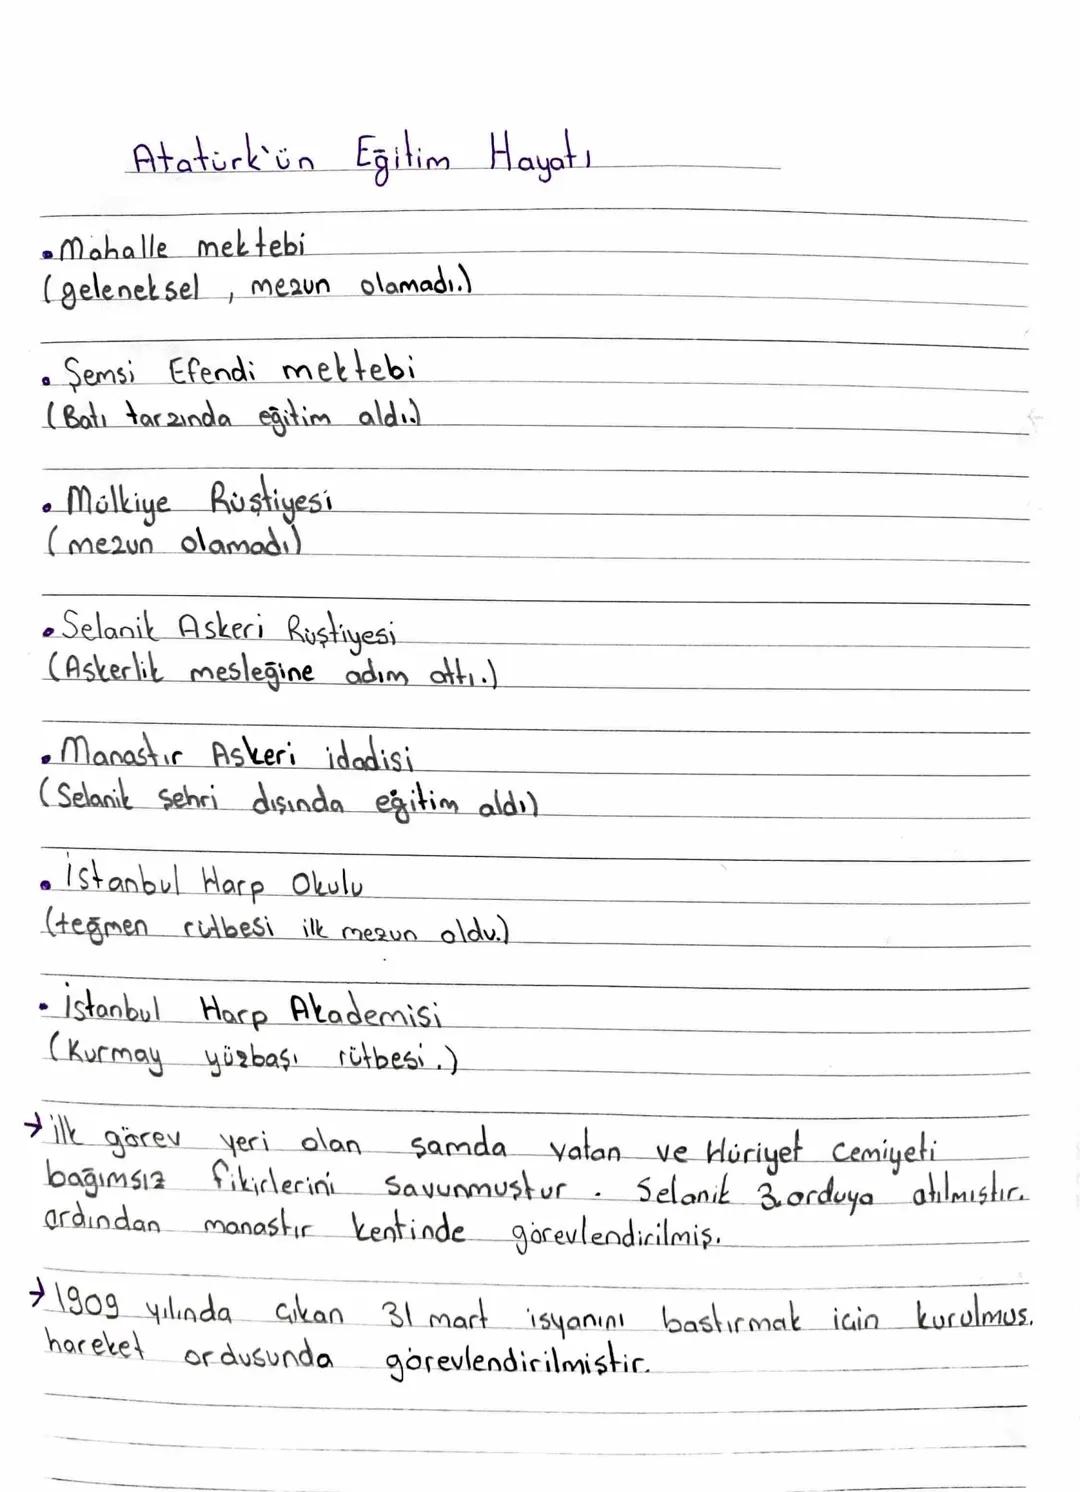 Atatürk'ün Eğitim Hayatı
• Mahalle mektebi
(geleneksel, mezun olamadı.)
• Şemsi Efendi mektebi
(Batı tarzında eğitim aldı.)
• Mülkiye Rüştiyesi
(mezun olamadı)
• Selanik Askeri Rüştiyesi
(Askerlik mesleğine adım attı.)
• Manastır Askeri idadisi
(Selanik şehri dışında eğitim aldı)
• İstanbul Harp Okulu
(teğmen rütbesi ilk mezun oldu.)
• İstanbul Harp Akademisi
(Kurmay yüzbaşı rütbesi.)
→ ilk görev yeri olan şamda vatan ve Hüriyet cemiyeti
bağımsız fikirlerini savunmuştur. Selanik 3.orduya atılmıştır.
ardından manastır kentinde görevlendirilmiş.
→ 1909 yılında çıkan 31 mart isyanını bastırmak için kurulmuş.
hareket ordusunda görevlendirilmiştir.